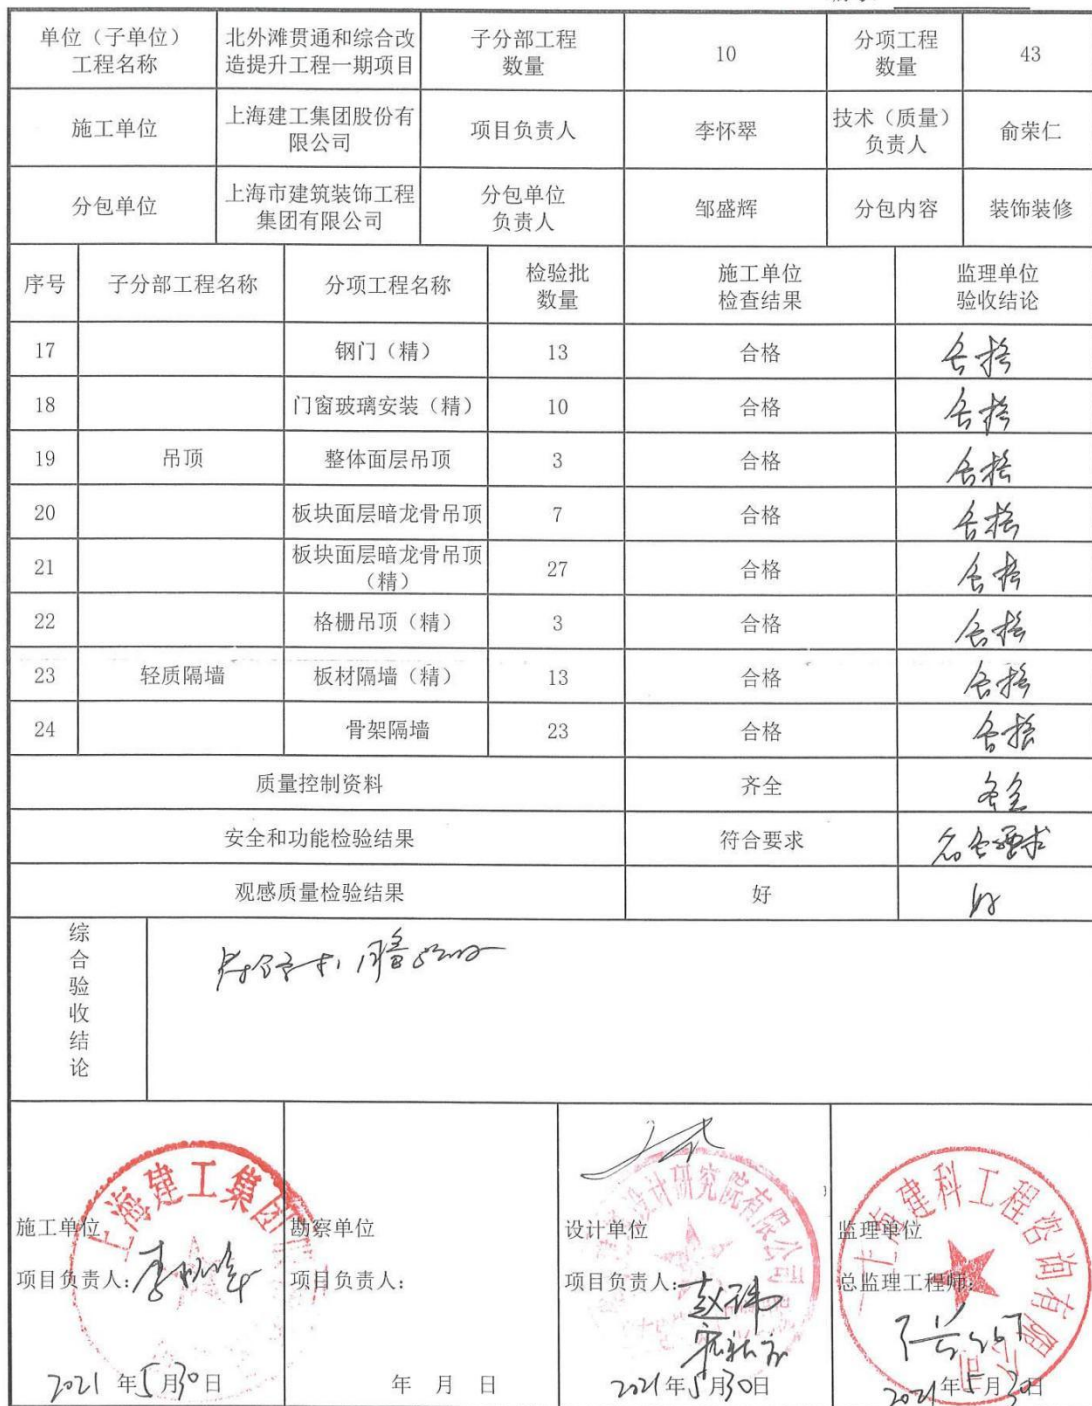 单位（子单位）
工程名称
北外滩贯通和综合改
造提升工程一期项目
子分部工程
数量
10
分项工程
数量
43
施工单位
上海建工集团股份有
限公司
项目负责人
李怀翠
技术（质量）
负责人
俞荣仁
分包单位
上海市建筑装饰工程
集团有限公司
分包单位
负责人
邹盛辉
分包内容
装饰装修
序号
子分部工程名称
分项工程名称
检验批
数量
施工单位
检查结果
监理单位
验收结论
17
钢门（精）
13
合格
合格
18
门窗玻璃安装（精）
10
合格
合格
19
吊顶
整体面层吊顶
3
合格
合格
20
板块面层暗龙骨吊顶
7
合格
合格
21
板块面层暗龙骨吊顶
（精）
27
合格
合格
22
格栅吊顶（精）
3
合格
合格
23
轻质隔墙
板材隔墙（精）
13
合格
合格
24
骨架隔墙
23
合格
合格
质量控制资料
齐全
齐全
安全和功能检验结果
符合要求
符合要求
观感质量检验结果
好
好
综
合
验
收
结
论
上海建工集团
施工单位
项目负责人：
2021 年 5 月 30 日
勘察单位
项目负责人：
年 月 日
设计研究院有限公司
设计单位
项目负责人：
赵玮
2021 年 5 月 30 日
上海建科工程咨询有限公司
监理单位
总监理工程师：
2021 年 5 月 30 日